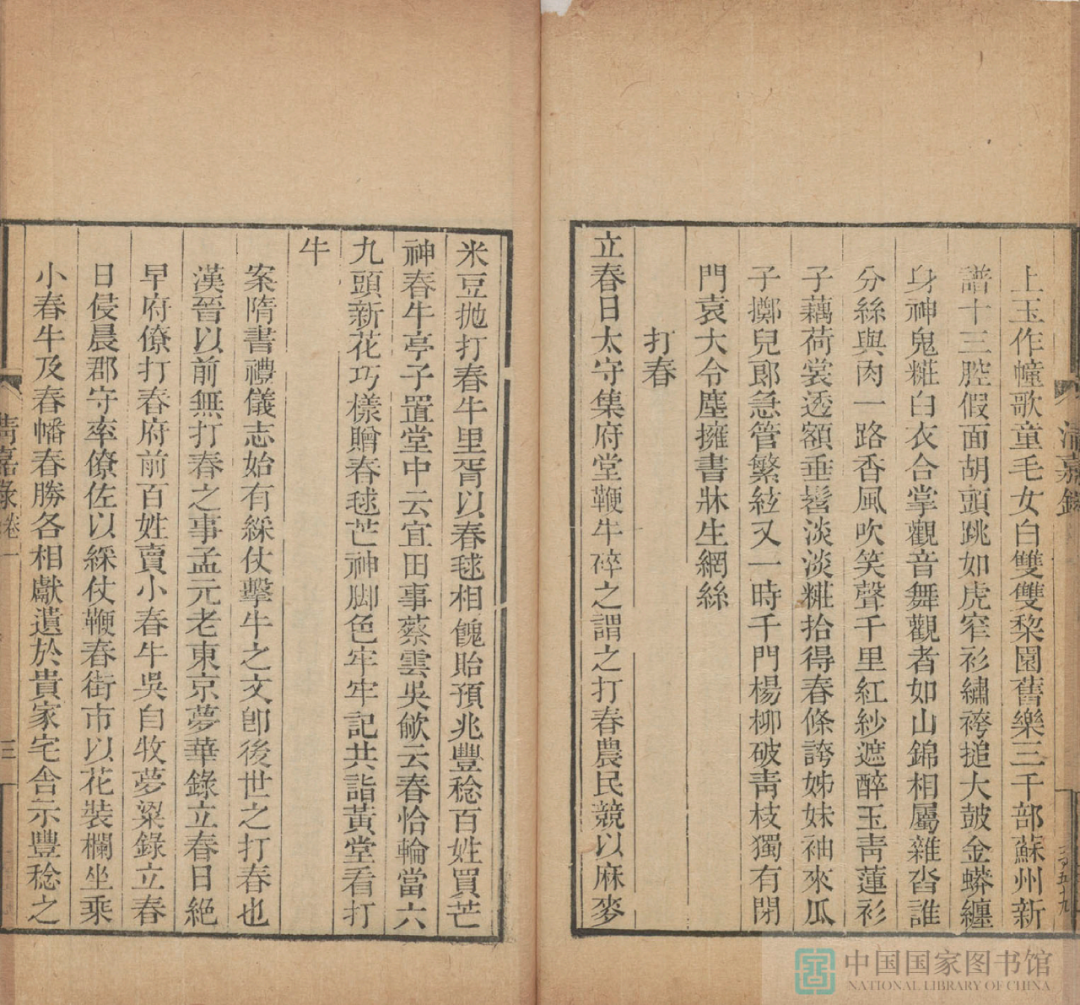 上玉作幢歌童毛女白雙雙黎園舊樂三千部蘇州新
譜十三腔假面胡頭跳如虎窄衫繡袴搥大鼓金蟒纏
身神鬼粧白衣合掌觀音舞觀者如山錦相屬雜沓誰
分絲與肉一路香風吹笑聲千里紅紗遮醉玉靑蓮衫
子藕荷裳透額垂髫淡淡粧拾得春條誇姊妹袖來瓜
子擲兒郞急管繁絃又一時千門楊柳破靑枝獨有閉
門袁大令塵擁書牀生網絲
打春
立春日太守集府堂鞭牛碎之謂之打春農民競以麻麥
清嘉錄
米豆拋打春牛里胥以春毬相餽貽預兆豐稔百姓買芒
神春牛亭子置堂中云宜田事蔡雲吳歈云春恰輪當六
九頭新花巧樣贈春毬芒神脚色牢牢記共詣黃堂看打
牛
案隋書禮儀志始有綵仗擊牛之文卽後世之打春也
漢晉以前無打春之事孟元老東京夢華錄立春日絕
早府僚打春府前百姓賣小春牛吳自牧夢粱錄立春
日侵晨郡守率僚佐以綵仗鞭春街市以花裝欄坐乘
小春牛及春幡春勝各相獻遺於貴家宅舍示豐稔之
清嘉錄 卷一
三
中国国家图书馆
NATIONAL LIBRARY OF CHINA